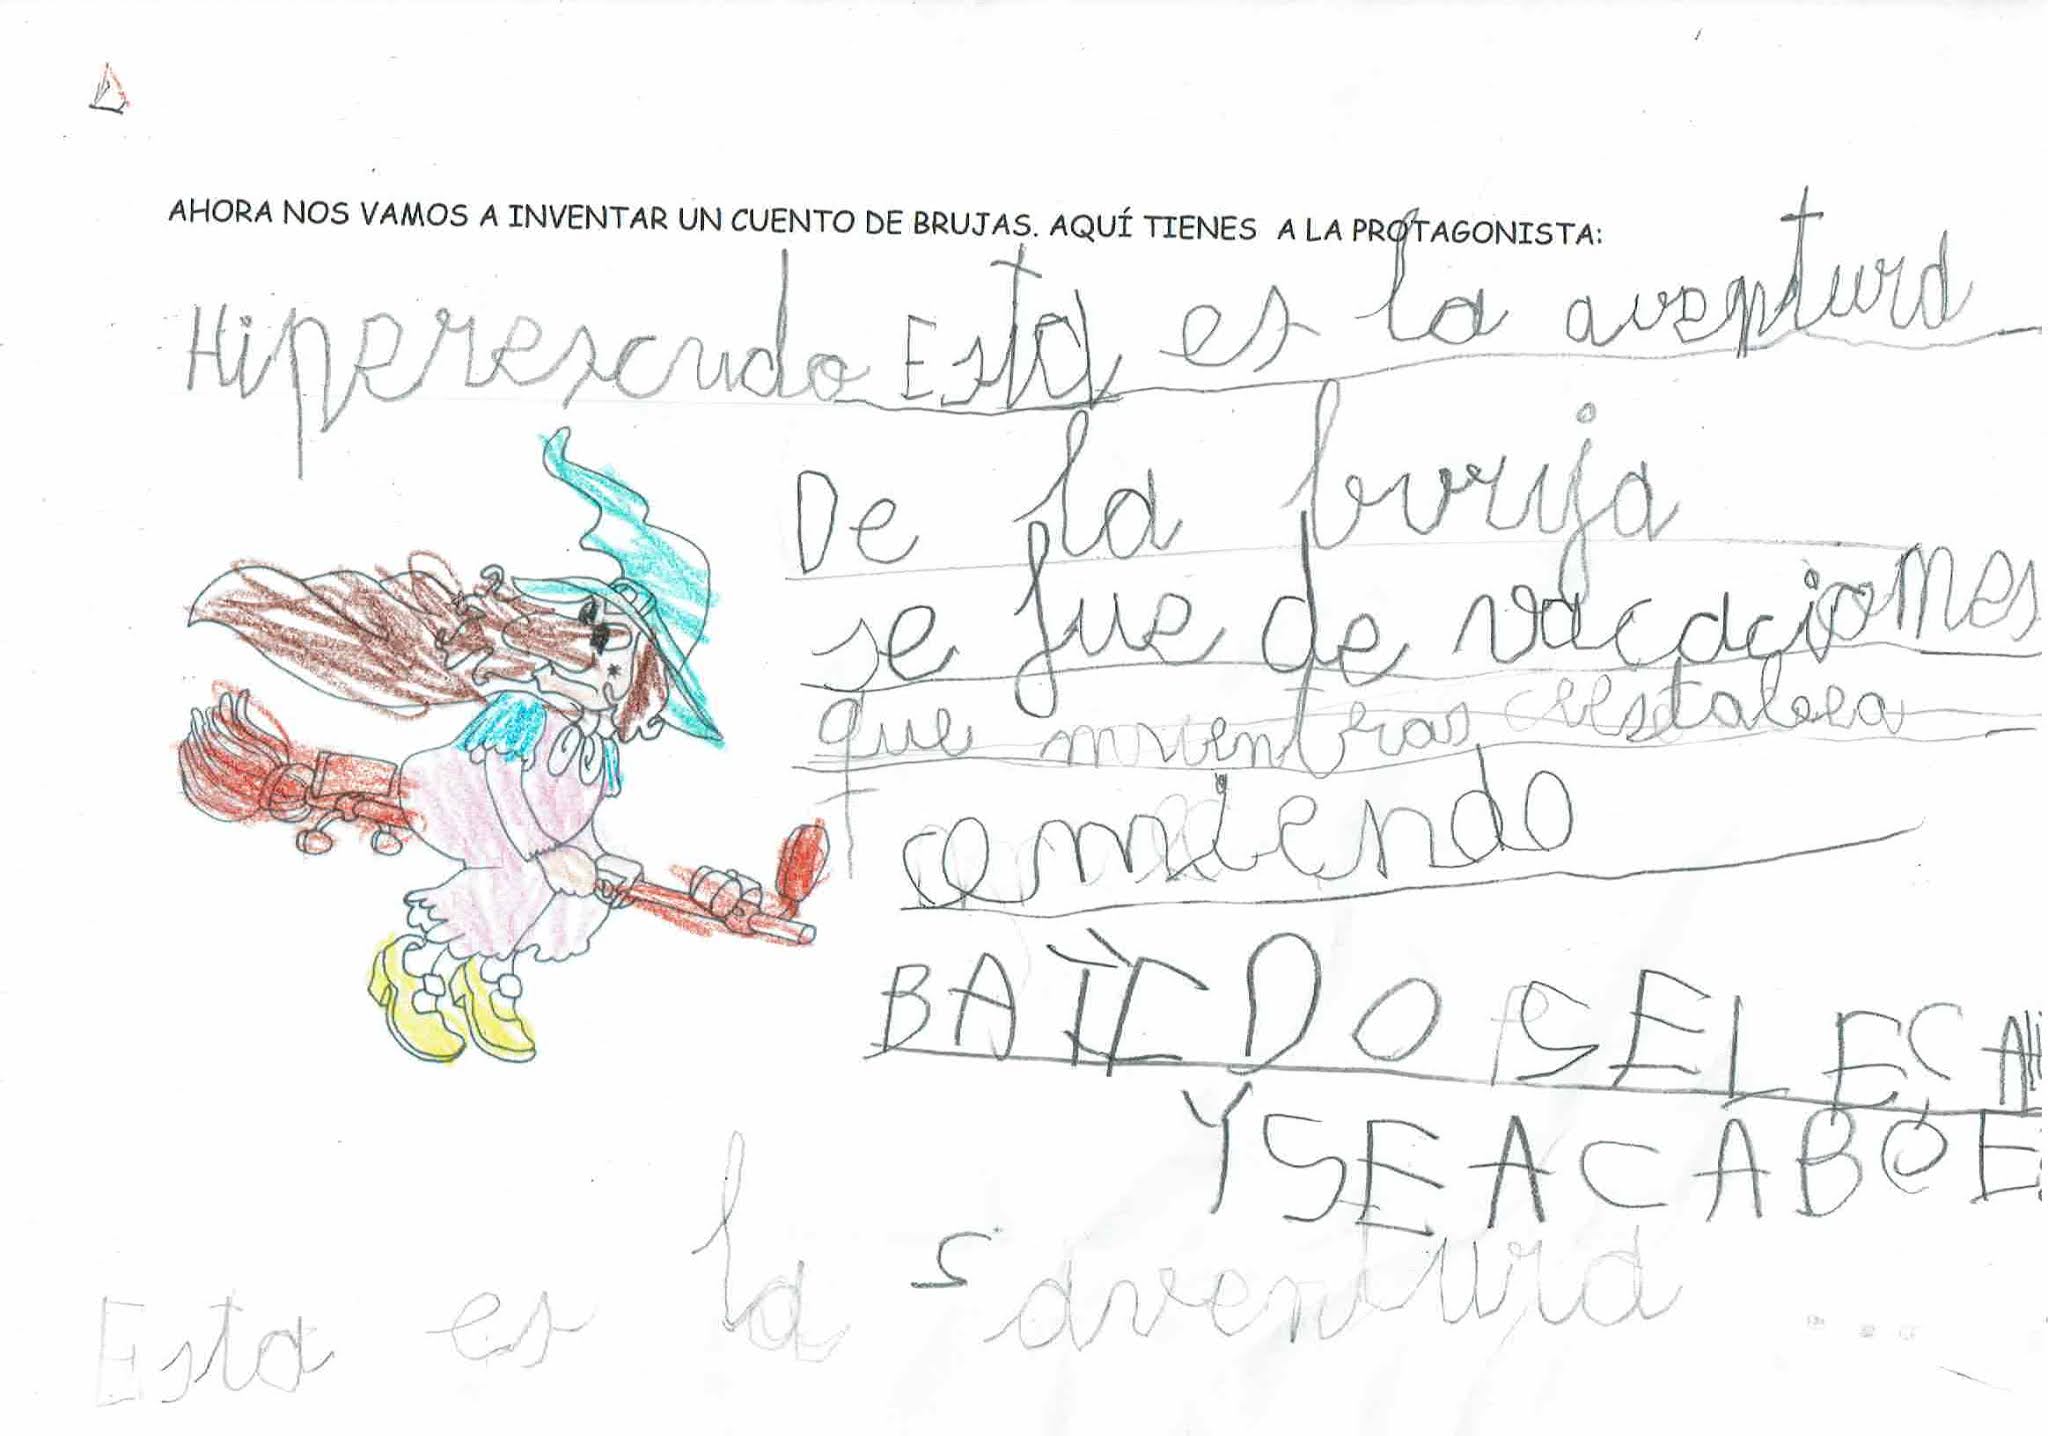 AHORA NOS VAMOS A INVENTAR UN CUENTO DE BRUJAS. AQUÍ TIENES A LA PROTAGONISTA:
Hiperescudo Esta es la aventura
De la bruja
se fue de vacaciomes
que mientras estaba
comiendo
SE LE
Y SE ACABÓ
Esta es la aventura